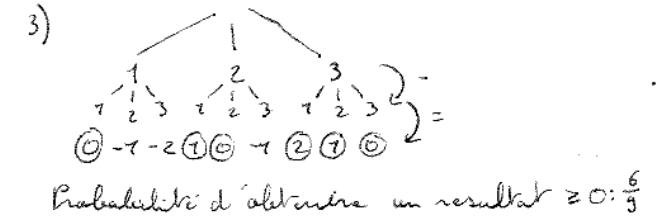 3)
1 2 3 -
1 2 3 1 2 3 1 2 3 =
0 -1 -2 1 0 -1 2 1 0
Probabilité d'obtenire un resultat ≥ 0: 6/9